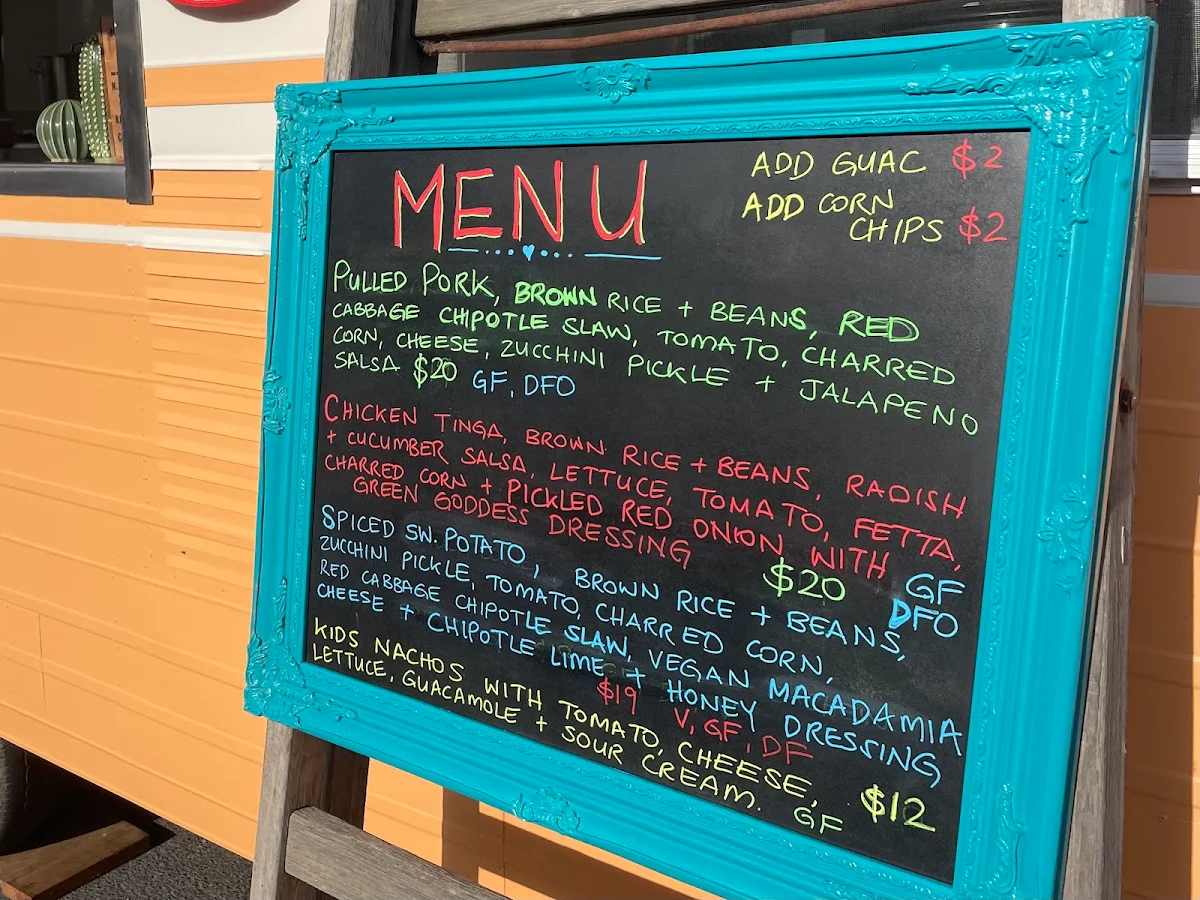 MENU
ADD GUAC $2
ADD CORN
CHIPS $2
PULLED PORK, BROWN RICE + BEANS, RED
CABBAGE CHIPOTLE SLAW, TOMATO, CHARRED
CORN, CHEESE, ZUCCHINI PICKLE + JALAPENO
SALSA $20 GF, DFO
CHICKEN TINGA, BROWN RICE + BEANS, RADISH
+ CUCUMBER SALSA, LETTUCE, TOMATO, FETTA,
CHARRED CORN + PICKLED RED ONION WITH
GREEN GODDESS DRESSING $20 GF
DFO
SPICED SW. POTATO, BROWN RICE + BEANS,
ZUCCHINI PICKLE, TOMATO, CHARRED CORN,
RED CABBAGE CHIPOTLE SLAW, VEGAN MACADAMIA
CHEESE + CHIPOTLE LIME + HONEY DRESSING
$19 V, GF, DF
KIDS NACHOS WITH TOMATO, CHEESE,
LETTUCE, GUACAMOLE + SOUR CREAM. $12
GF